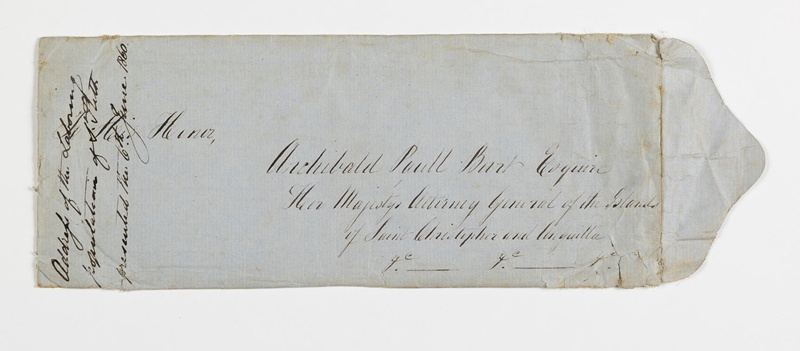 Address of the Laboring
population of St. Kitts
presented the 6th June. 1860.
His Honor,
Archibald Paull Burt Esquire
Her Majestys Attorney General of the Islands
of Saint Christopher and Anguilla
&c &c &c